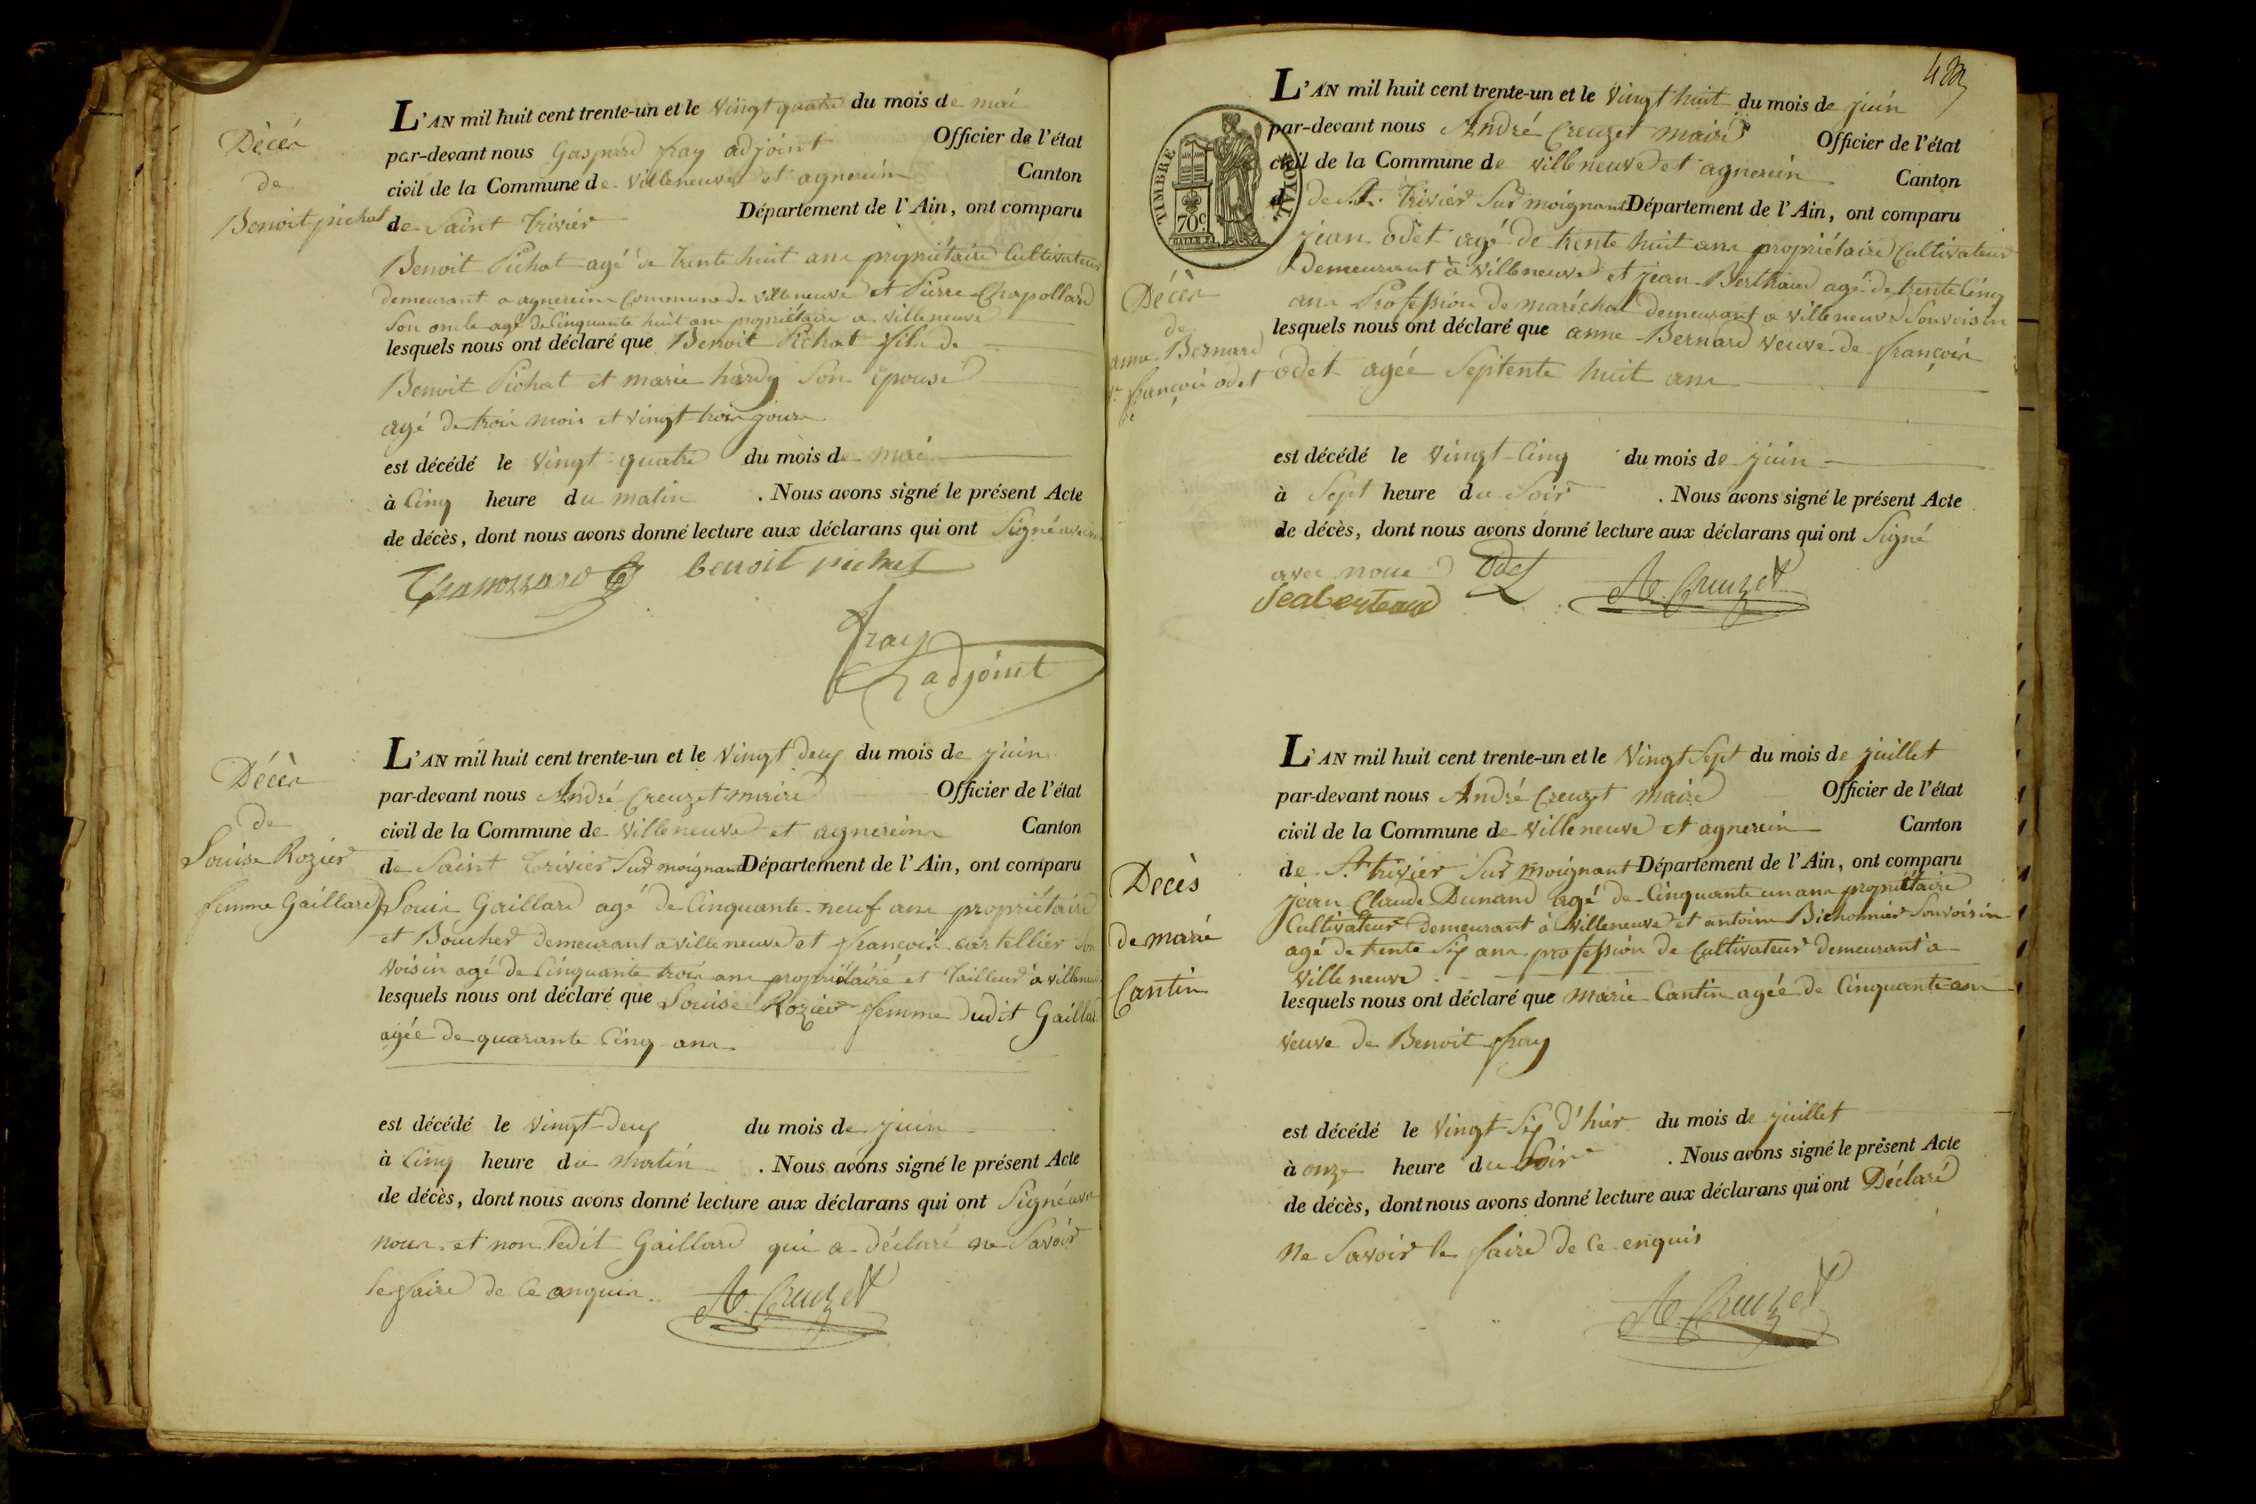 Décès
de
Benoit pichat
L'AN mil huit cent trente-un et le vingt quatre du mois de mai
par-devant nous Gaspard fray adjoint Officier de l'état
civil de la Commune de villeneuve et agnereins Canton
de Saint trivier Département de l'Ain, ont comparu
Benoit Pichat agé de trente huit ans propriétaire Cultivateur
demeurant a agnereins Commune de villeneuve et Pierre Chapollard
son oncle agé de Cinquante huit ans propriétaire a villeneuve
lesquels nous ont déclaré que Benoit Pichat fils de
Benoit Pichat et marie hardy Son Epouse
agé de trois mois et vingt trois jours
est décédé le vingt quatre du mois de mai
à Cinq heure du matin . Nous avons signé le présent Acte
de décès, dont nous avons donné lecture aux déclarans qui ont Signé avec
benoit pichat
fray
adjoint
Décès
de
Louise Rozier
femme Gaillard
L'AN mil huit cent trente-un et le vingt deux du mois de juin
par-devant nous André Creuzet maire Officier de l'état
civil de la Commune de villeneuve et agnereins Canton
de Saint trivier Sur moignans Département de l'Ain, ont comparu
Louis Gaillard agé de Cinquante-neuf ans propriétaire
et Boucher demeurant a villeneuve et françois cartellier son
voisin agé de Cinquante trois ans propriétaire et tailleur a villeneuve
lesquels nous ont déclaré que Louise Rozier femme dudit Gaillard
agée de quarante Cinq ans
est décédé le vingt-deux du mois de juin
à Cinq heure du matin . Nous avons signé le présent Acte
de décès, dont nous avons donné lecture aux déclarans qui ont Signé avec
nous et non ledit Gaillard qui a déclaré ne Savoir
le faire de Ce enquis. A. Creuzet
TIMBRE ROYAL
70c
L'AN mil huit cent trente-un et le vingt huit du mois de juin
par-devant nous André Creuzet maire Officier de l'état
civil de la Commune de villeneuve et agnereins Canton
de de St. trivier Sur moignans Département de l'Ain, ont comparu
Décès
de
anne Bernard
ve françois odet
jean odet agé de trente huit ans propriétaire Cultivateur
demeurant à villeneuve et jean Berthaud agé de trente Cinq
ans Profession de maréchal demeurant a villeneuve Son voisin
lesquels nous ont déclaré que anne Bernard veuve de françois
odet agée Septente huit ans
est décédé le vingt-Cinq du mois de juin
à Sept heure du Soir . Nous avons signé le présent Acte
de décès, dont nous avons donné lecture aux déclarans qui ont Signé
avec nous Odet A. Creuzet
Jeaberteaud
Decès
de marie
Cantin
L'AN mil huit cent trente-un et le vingt Sept du mois de juillet
par-devant nous André Creuzet maire Officier de l'état
civil de la Commune de villeneuve et agnereins Canton
de St. trivier Sur moignans Département de l'Ain, ont comparu
jean Claude Dunand agé de Cinquante un ans propriétaire
Cultivateur demeurant à villeneuve et antoine Bichonnier Son voisin
agé de trente Six ans profession de Cultivateur demeurant a
villeneuve
lesquels nous ont déclaré que marie Cantin agée de Cinquante ans
veuve de Benoit fray
est décédé le vingt Six d'hier du mois de juillet
à onze heure du Soir . Nous avons signé le présent Acte
de décès, dont nous avons donné lecture aux déclarans qui ont Déclaré
ne Savoir le faire de Ce enquis
A. Creuzet